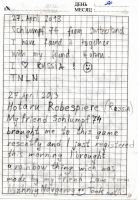 ДЕНЬ
МЕСЯЦ
27. April 2013
Schlumpf 74 from Switzerland
I have found it together
with my friend Hotaru
♥ RUSSIA ! ☺
TNLN
27 April 2013
Hotaru Robespiere (Russia)
My friend Schlumpf 74
brought me to this game
recently and I just registered
this morning. I brought
a rainbow thing wich was
made by